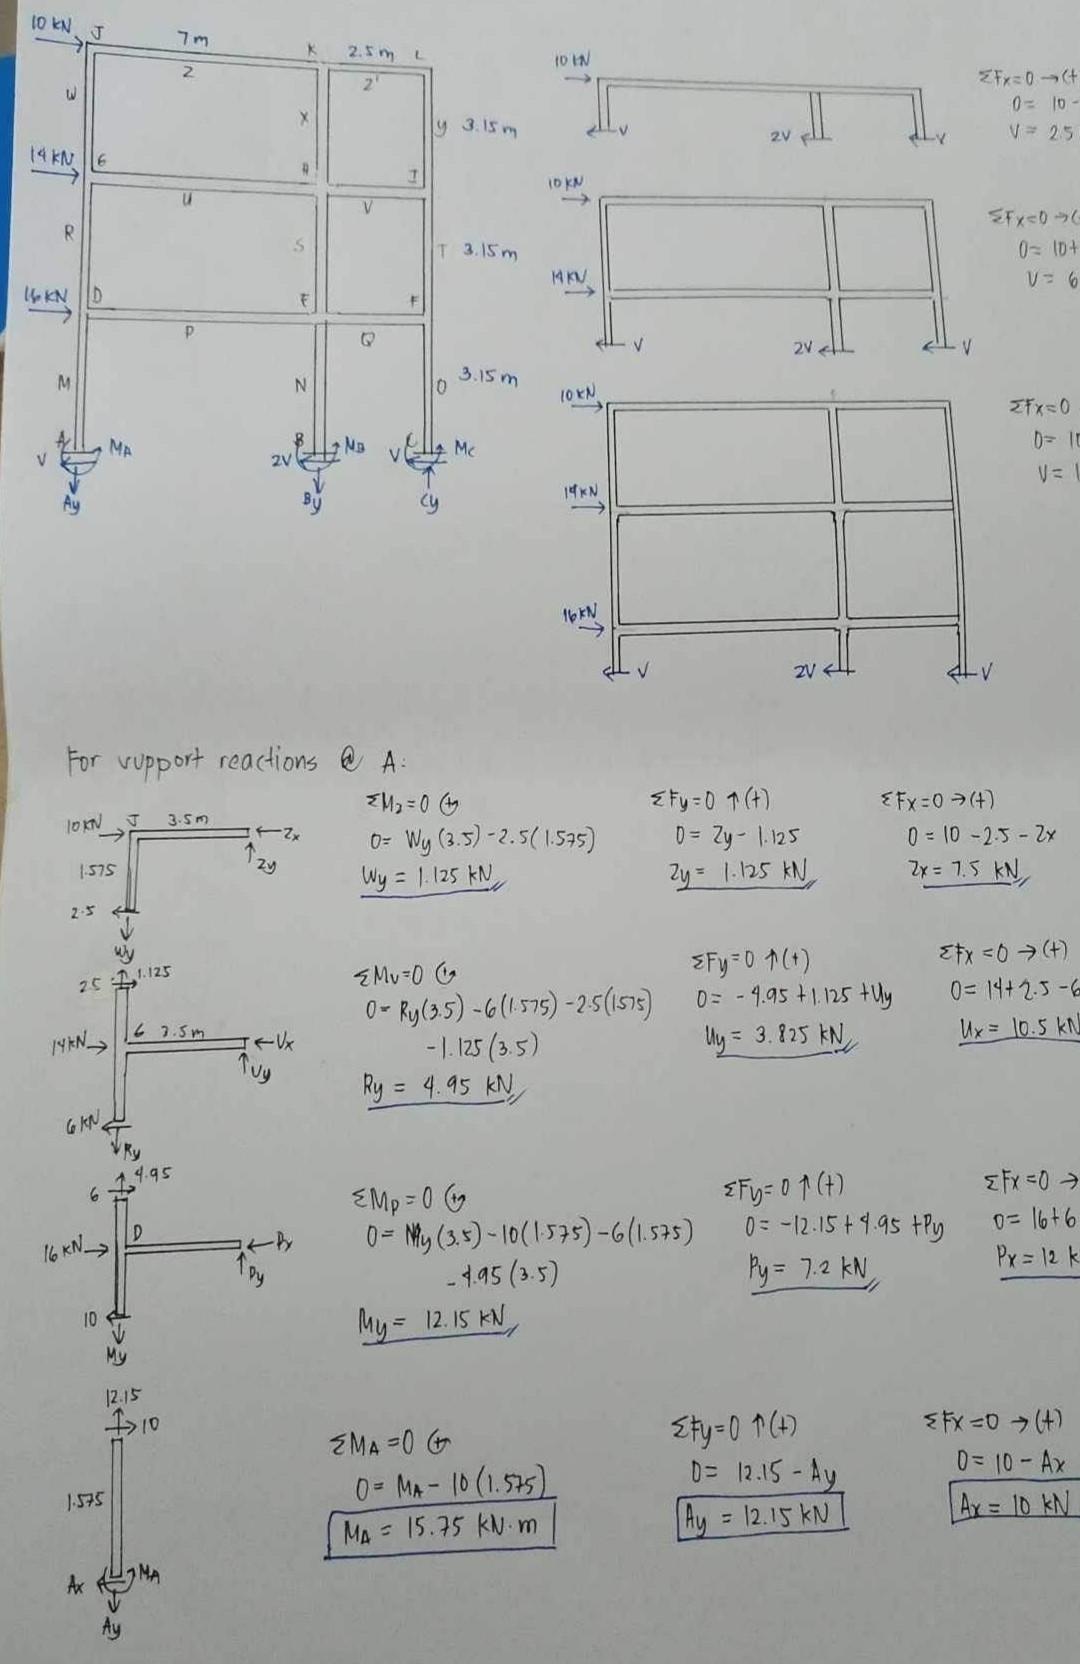 10 KN J 7m K 2.5m L
Z Z'
W X y 3.15m
14 KN G H I
U V
R S T 3.15m
16 KN D E F
P Q
M N O 3.15m
A V MA B 2V MB C V Mc
Ay By Cy
10 KN
V 2V V
ΣFx=0 →(+
0= 10-
V= 2.5
10 KN
14 KN
V 2V V
ΣFx=0 →(
0= 10+
V= 6
10 KN
14 KN
16 KN
V 2V V
ΣFx=0
0= 1
V= 1
For support reactions @ A:
10 KN J 3.5m Zx
1.575 Zy
2.5
Wy
ΣMz=0
0= Wy(3.5)-2.5(1.575)
Wy = 1.125 KN
ΣFy=0 ↑(+)
0= Zy- 1.125
Zy= 1.125 KN
ΣFx=0 →(+)
0= 10 -2.5 - Zx
Zx= 7.5 KN
2.5 1.125
14 KN G 3.5m Ux
Uy
6 KN
Ry
ΣMu=0
0= Ry(3.5)-6(1.575)-2.5(1.575)
-1.125(3.5)
Ry = 4.95 KN
ΣFy=0 ↑(+)
0= -4.95+1.125+Uy
Uy= 3.825 KN
ΣFx=0 →(+)
0= 14+2.5-6
Ux= 10.5 KN
6 4.95
16 KN D Px
Py
10
My
ΣMp=0
0= My(3.5)-10(1.575)-6(1.575)
-4.95(3.5)
My= 12.15 KN
ΣFy=0 ↑(+)
0= -12.15+4.95+Py
Py= 7.2 KN
ΣFx=0 →
0= 16+6
Px= 12 K
12.15
10
1.575
Ax MA
Ay
ΣMA=0
0= MA- 10(1.575)
MA = 15.75 KN·m
ΣFy=0 ↑(+)
0= 12.15 - Ay
Ay = 12.15 KN
ΣFx=0 →(+)
0= 10 - Ax
Ax= 10 KN